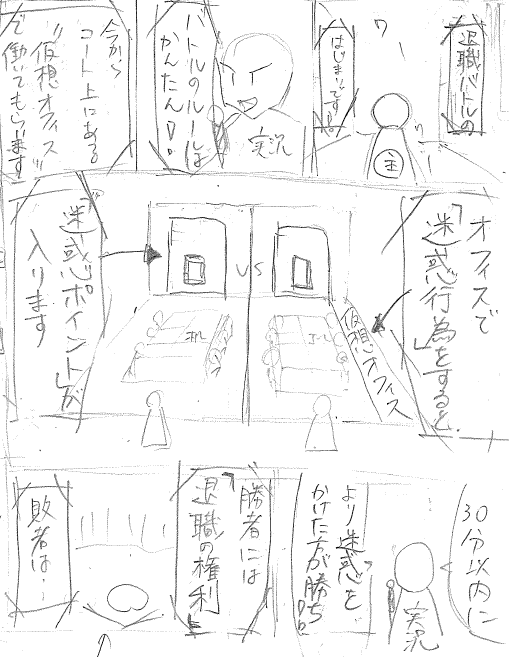 退職バトルの
はじまりです!!
ワー
主
バトルのルールは
かんたん!!
実況
今から
コート上にある
"仮想オフィス"
で働いてもらいます
オフィスで
「迷惑行為」をすると
仮想オフィス
VS
「迷惑ポイント」が
入ります
30分以内に
実況
より迷惑を
かけた方が勝ち!!
勝者には
「退職の権利」
敗者は…